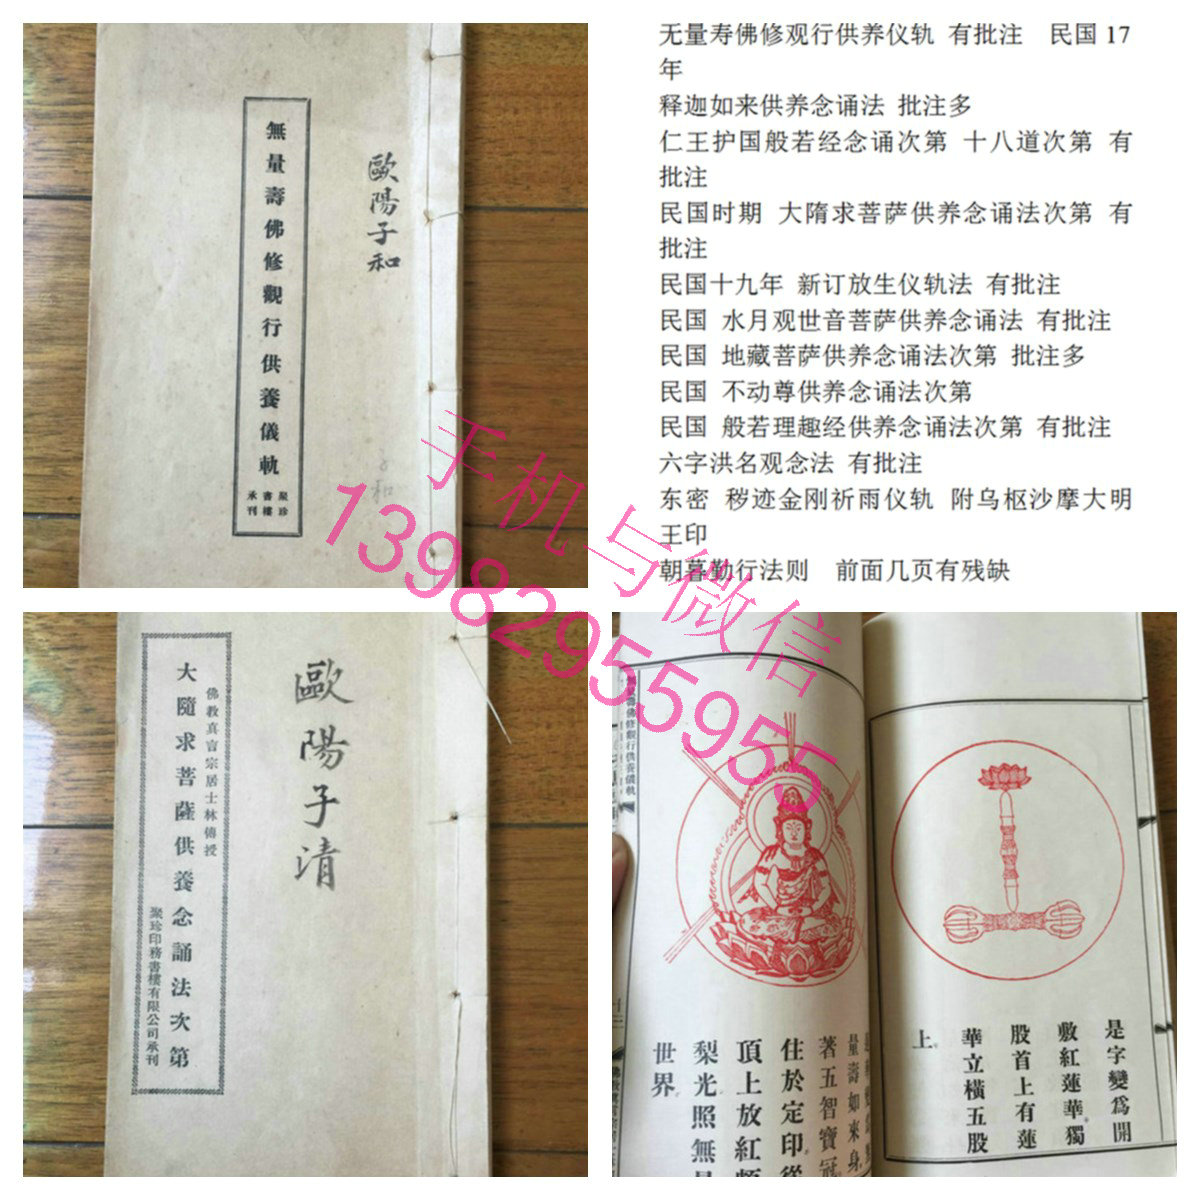 無量壽佛修觀行供養儀軌
聚珍
書樓
承刊
歐陽子和
子和
无量寿佛修观行供养仪轨 有批注 民国 17
年
释迦如来供养念诵法 批注多
仁王护国般若经念诵次第 十八道次第 有
批注
民国时期 大隋求菩萨供养念诵法次第 有
批注
民国十九年 新订放生仪轨法 有批注
民国 水月观世音菩萨供养念诵法 有批注
民国 地藏菩萨供养念诵法次第 批注多
民国 不动尊供养念诵法次第
民国 般若理趣经供养念诵法次第 有批注
六字洪名观念法 有批注
东密 秽迹金刚祈雨仪轨 附乌枢沙摩大明
王印
朝暮勤行法则 前面几页有残缺
手机与微信
13982955955
歐陽子清
佛教真言宗居士林傳授
大隨求菩薩供養念誦法次第
聚珍印務書樓有限公司承刊
無量壽佛修觀行供養儀軌
是字變爲開
敷紅蓮華。獨
股首上有蓮
華立橫五股
上。
量壽如來身。
著五智寶冠。
住於定印。從
頂上放紅頗
梨光照無量
世界。